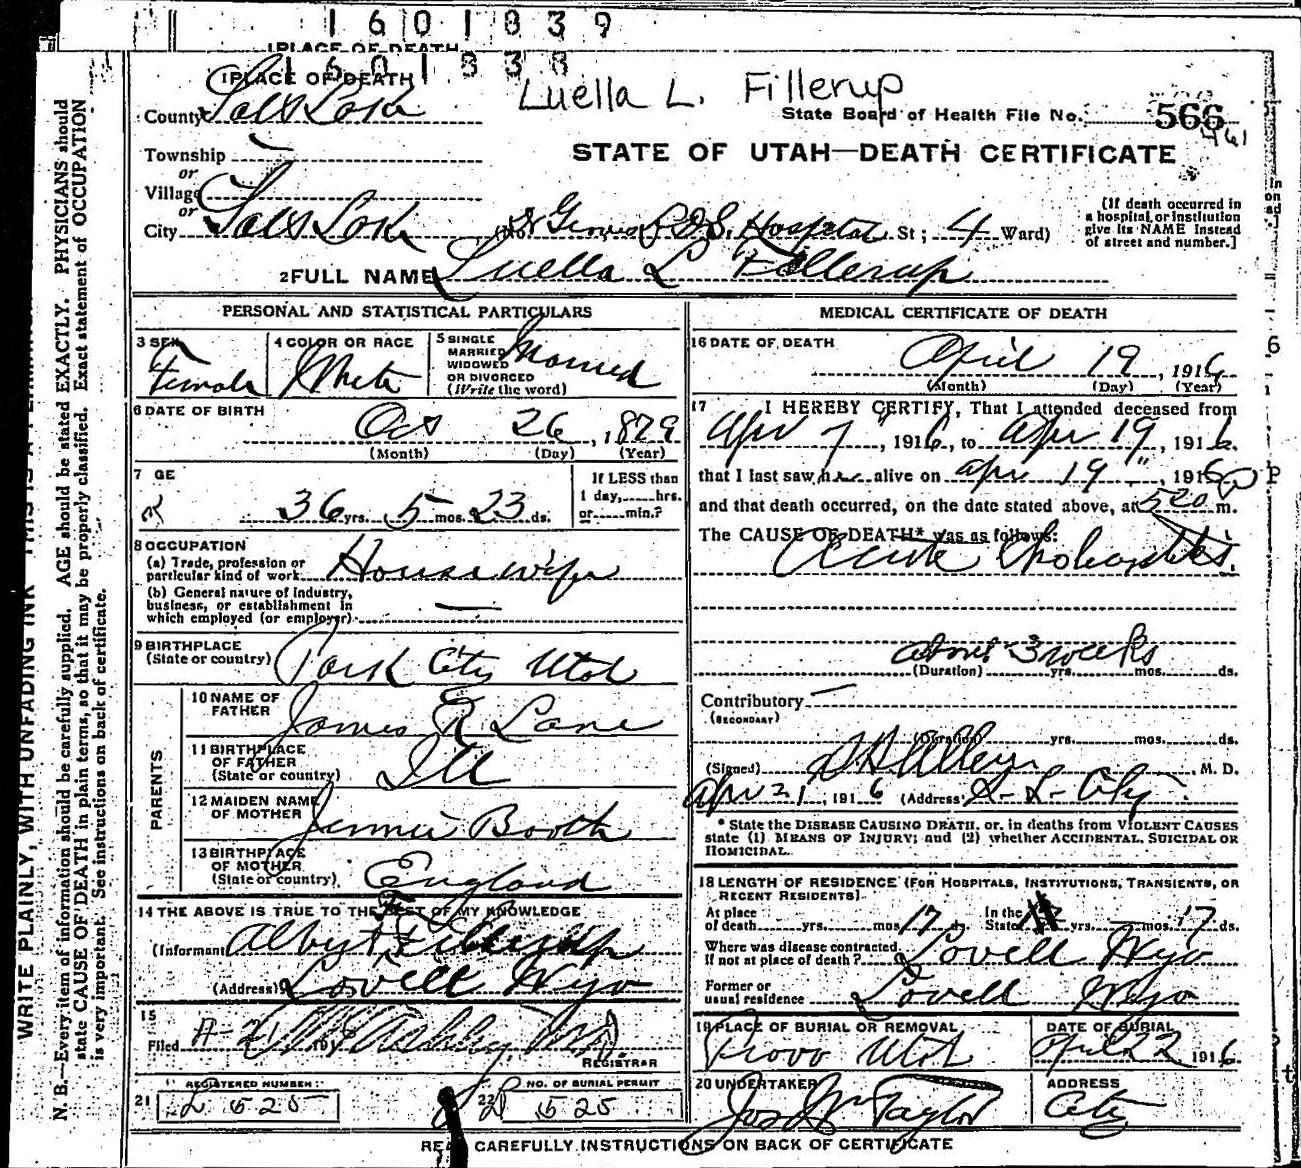 1601839
1 PLACE OF DEATH
1601838
1 PLACE OF DEATH
Luella L. Fillerup
County Salt Lake
State Board of Health File No. 566
461
Township —
STATE OF UTAH—DEATH CERTIFICATE
or
Village
or
City Salt Lake (No. L.D.S. Hospital St; 4 Ward)
[If death occurred in
a hospital or institution
give its NAME instead
of street and number.]
2 FULL NAME Luella L Fillerup
PERSONAL AND STATISTICAL PARTICULARS
3 SEX Female
4 COLOR OR RACE White
5 SINGLE
MARRIED
WIDOWED
OR DIVORCED
(Write the word) Married
6 DATE OF BIRTH
Oct 26, 1879
(Month) (Day) (Year)
7 GE
36 yrs. 5 mos. 23 ds.
If LESS than
1 day,......hrs.
or......min.?
8 OCCUPATION
(a) Trade, profession or
particular kind of work Housewife
(b) General nature of industry,
business, or establishment in
which employed (or employer) —
9 BIRTHPLACE
(State or country) Park City Utah
PARENTS
10 NAME OF
FATHER James R Lane
11 BIRTHPLACE
OF FATHER
(State or country) Ill
12 MAIDEN NAME
OF MOTHER Jennie Booth
13 BIRTHPLACE
OF MOTHER
(State or country) England
14 THE ABOVE IS TRUE TO THE BEST OF MY KNOWLEDGE
(Informant) Albert Fillerup
(Address) Lovell Wyo
15
Filed
REGISTRAR
REGISTERED NUMBER
21 L 525
NO. OF BURIAL PERMIT
22 L 525
MEDICAL CERTIFICATE OF DEATH
16 DATE OF DEATH
April 19, 1916
(Month) (Day) (Year)
17 I HEREBY CERTIFY, That I attended deceased from
Apr 7", 1916, to Apr 19, 1916.
that I last saw her alive on Apr 19", 1916
and that death occurred, on the date stated above, at 520 P m.
The CAUSE OF DEATH* was as follows:
Acute
about 3 weeks
(Duration) yrs. mos. ds.
Contributory —
(SECONDARY)
(Duration) yrs. mos. ds.
(Signed) M. D.
Apr 21, 1916 (Address) S. L. City
* State the DISEASE CAUSING DEATH, or, in deaths from VIOLENT CAUSES
state (1) MEANS OF INJURY; and (2) whether ACCIDENTAL, SUICIDAL OR
HOMICIDAL.
18 LENGTH OF RESIDENCE (FOR HOSPITALS, INSTITUTIONS, TRANSIENTS, OR
RECENT RESIDENTS).
At place
of death yrs. mos. 17 ds. In the
State yrs. mos. 17 ds.
Where was disease contracted
if not at place of death? Lovell Wyo
Former or
usual residence Lovell Wyo
19 PLACE OF BURIAL OR REMOVAL
Provo Utah
DATE OF BURIAL
April 22, 1916.
20 UNDERTAKER
Jos Wm Taylor
ADDRESS
City
READ CAREFULLY INSTRUCTIONS ON BACK OF CERTIFICATE
WRITE PLAINLY, WITH UNFADING INK THIS IS A
N. B.—Every item of information should be carefully supplied. AGE should be stated EXACTLY. PHYSICIANS should
state CAUSE OF DEATH in plain terms, so that it may be properly classified. Exact statement of OCCUPATION
is very important. See instructions on back of certificate.